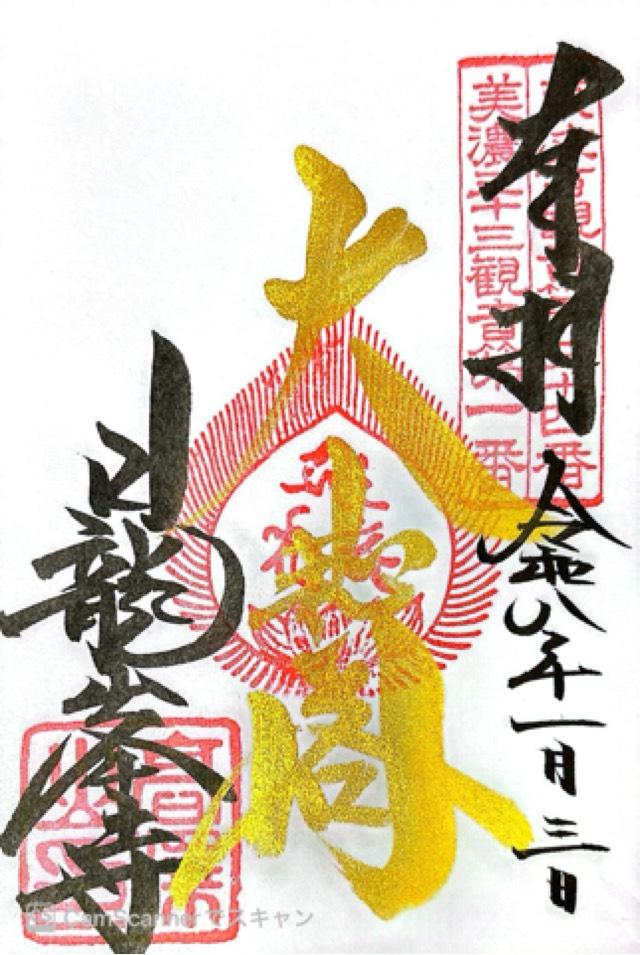 奉拝
美濃三十三観音第一番
令和八年一月三日
大悲閣
日龍峯寺
CS CamScannerでスキャン